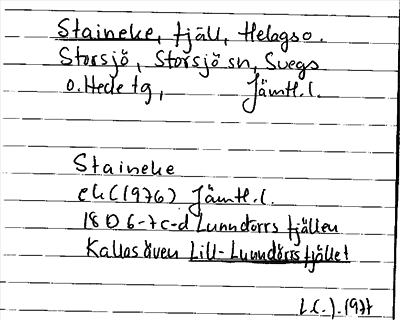 Staineke, fjäll, Helags o.
Storsjö, Storsjö sn, Svegs
o. Hede tg, Jämtl.l.
Staineke
ek (1976) Jämtl.l.
18 D 6-7 c-d Lunndörrs fjällen
Kallas även Lill-Lunndörrsfjället
1977